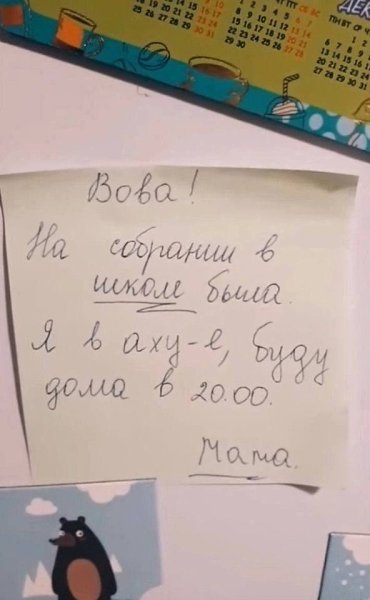 Вова!
На собрании в
школе была.
Я в аху-е, буду
дома в 20.00.
Мама.